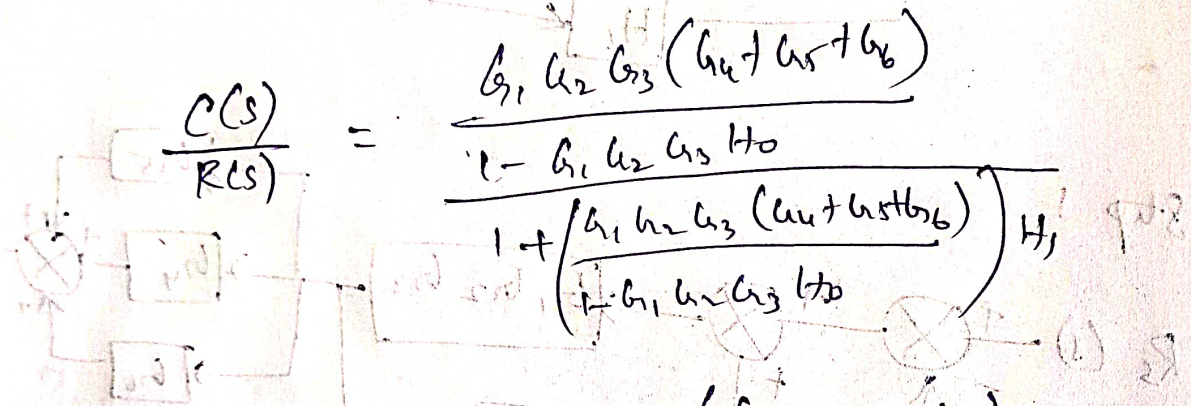 C(S) / R(S) = [G1 G2 G3 (G4 + G5 + G6) / 1 - G1 G2 G3 H0] / [1 + (G1 G2 G3 (G4 + G5 + G6) / 1 - G1 G2 G3 H0) H1]